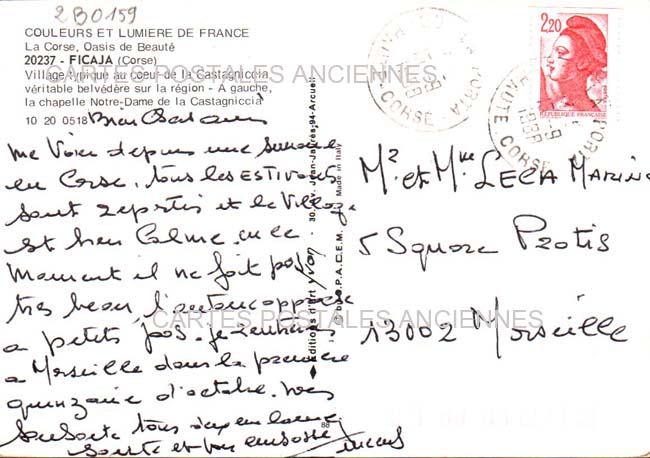 2B0159
COULEURS ET LUMIERE DE FRANCE
La Corse, Oasis de Beauté
20237 - FICAJA (Corse)
Village typique au coeur de la Castagniccia
véritable belvédère sur la région - A gauche,
la chapelle Notre-Dame de la Castagniccia
10 20 0518
CARTES POSTALES ANCIENNES
2,20
REPUBLIQUE FRANÇAISE
LA PORTA
HAUTE-CORSE
1988
LA PORTA
HAUTE-CORSE
1988
me voici depuis une semaine
en Corse, tous les ESTIVANTS
sont repartis et le Village
est bien Calme. en ce
moment il ne fait pas
très beau, l'automne approche
a petits pas. je rentrerai
a Marseille dans la première
quinzaine d'octobre.
souhaite tous
santé et embrasse
◄ Editions d'art yvon - 30, Av. Jean-Jaurès, 94-Arcueil
Made in Italy
M² et Mme LECA MARINO
5 Square Protis
13002 Marseille
CARTES POSTALES ANCIENNES
88